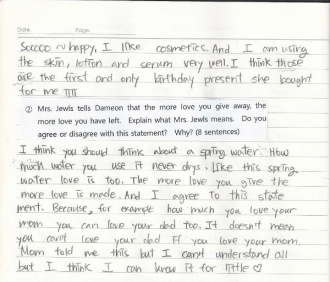 Date. Page.
Soooooo ~ happy, I like cosmetics. And I am using
the skin, lotion and serum very well. I think those
are the first and only birthday present she bought
for me
② Mrs. Jewls tells Dameon that the more love you give away, the
more love you have left. Explain what Mrs. Jewls means. Do you
agree or disagree with this statement? Why? (8 sentences)
I think you should think about a spring water. How
much water you use it never drys. Like this spring
water love is too. The more love you give the
more love is made. And I agree to this state
ment. Because, for example how much you love your
mom you can love your dad too. It doesn't mean
you can't love your dad if you love your mom.
Mom told me this but I can't understand all
but I think I can know it for little ♡